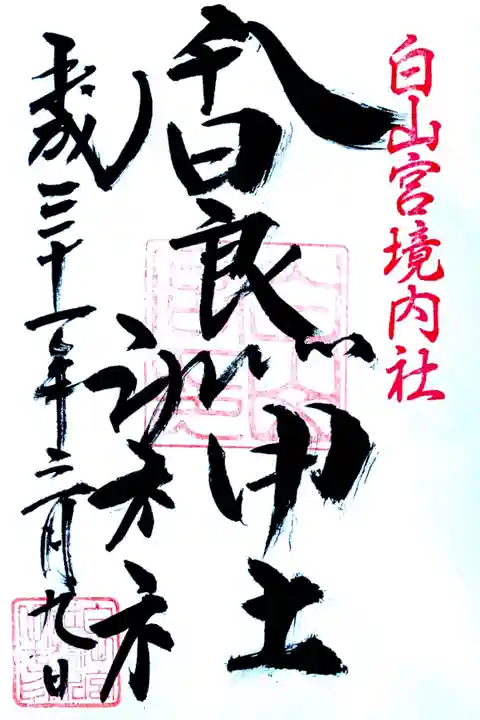 白山宮境内社
香良洲神社
平成三十一年二月九日